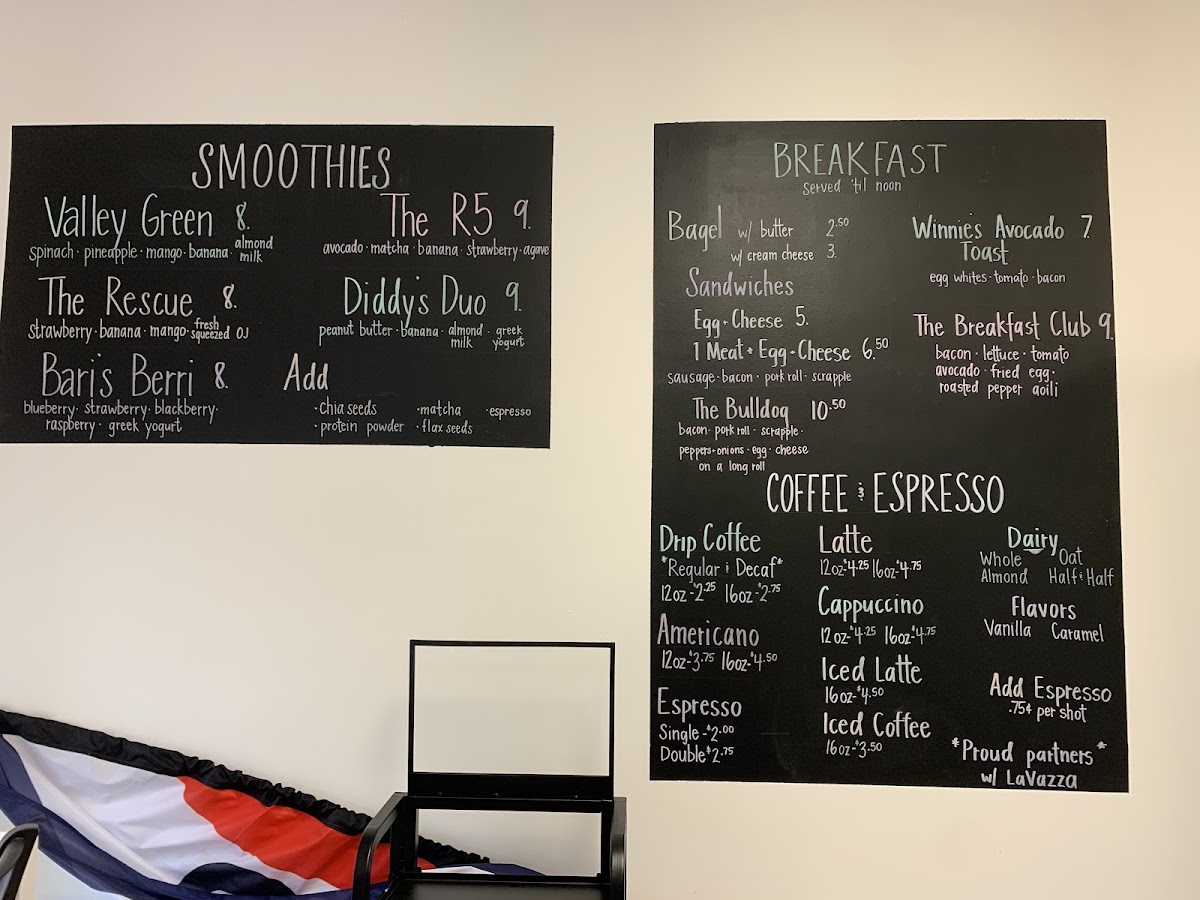 SMOOTHIES
Valley Green 8.
spinach · pineapple · mango · banana · almond milk
The Rescue 8.
strawberry · banana · mango · fresh squeezed OJ
Bari's Berri 8.
blueberry · strawberry · blackberry ·
raspberry · greek yogurt
The R5 9.
avocado · matcha · banana · strawberry · agave
Diddy's Duo 9.
peanut butter · banana · almond milk · greek yogurt
Add
· Chia seeds · matcha · espresso
· protein powder · flax seeds
BREAKFAST
served 'til noon
Bagel w/ butter 2.50
w/ cream cheese 3.
Sandwiches
Egg + Cheese 5.
1 Meat + Egg + Cheese 6.50
sausage · bacon · pork roll · scrapple
The Bulldog 10.50
bacon · pork roll · scrapple ·
peppers + onions · egg · cheese
on a long roll
Winnie's Avocado 7.
Toast
egg whites · tomato · bacon
The Breakfast Club 9.
bacon · lettuce · tomato
avocado · fried egg ·
roasted pepper aoili
COFFEE & ESPRESSO
Drip Coffee
*Regular & Decaf*
12oz-$2.25 16oz-$2.75
Americano
12oz-$3.75 16oz-$4.50
Espresso
Single-$2.00
Double$2.75
Latte
12oz-$4.25 16oz-$4.75
Cappuccino
12oz-$4.25 16oz-$4.75
Iced Latte
16oz-$4.50
Iced Coffee
16oz-$3.50
Dairy
Whole Oat
Almond Half & Half
Flavors
Vanilla Caramel
Add Espresso
.75¢ per shot
*Proud partners*
w/ LaVazza